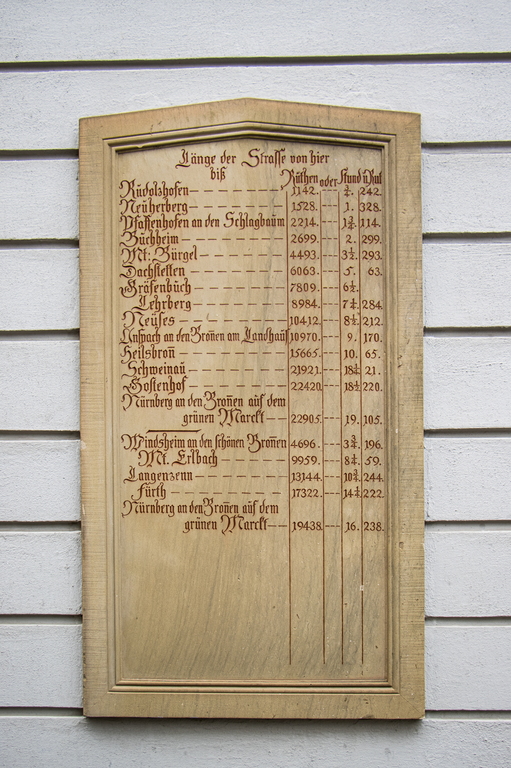 Länge der Strasse von hier
biß Růthen oder Stund ů Rut.
Růdolshofen 1142. 242.
Neůherberg 1528. 1. 328.
Pfaffenhofen an den Schlagbaům 2214. 114.
Bůchheim 2699. 2. 299.
Mt: Bürgel 4493. 3½. 293.
Dachstetten 6063. 5. 63.
Gräfenbůch 7809. 6½.
Lehrberg 8984. 284.
Neůses 10412. 212.
Anspach an den Broñen am Landhaůß 10970. 9. 170.
Heilsbroñ 15665. 10. 65.
Schweinaů 21921. 21.
Gostenhof 22420. 18½ 220.
Nürnberg an den Broñen auf dem
grünen Marckt 22905. 19. 105.
Windsheim an den schönen Broñen 4696. 3¾. 196.
Mt. Erlbach 9959. 8¼. 59.
Langenzenn 13144. 244.
Fürth 17322. 222.
Nürnberg an den Broñen auf dem
grünen Marckt 19438. 16. 238.